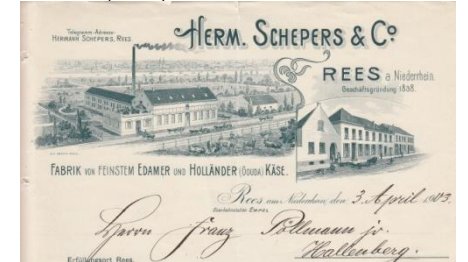 Telegramm-Adresse:
HERMANN SCHEPERS, REES.
HERM. SCHEPERS & Cº
REES a. Niederrhein.
Geschäftsgründung 1838.
FABRIK VON FEINSTEM EDAMER UND HOLLÄNDER (GOUDA) KÄSE.
Rees am Niederrhein, den 3. April 1903.
Herrn Franz Pöllmann jr.
Hallenberg.
Erfüllungsort Rees.